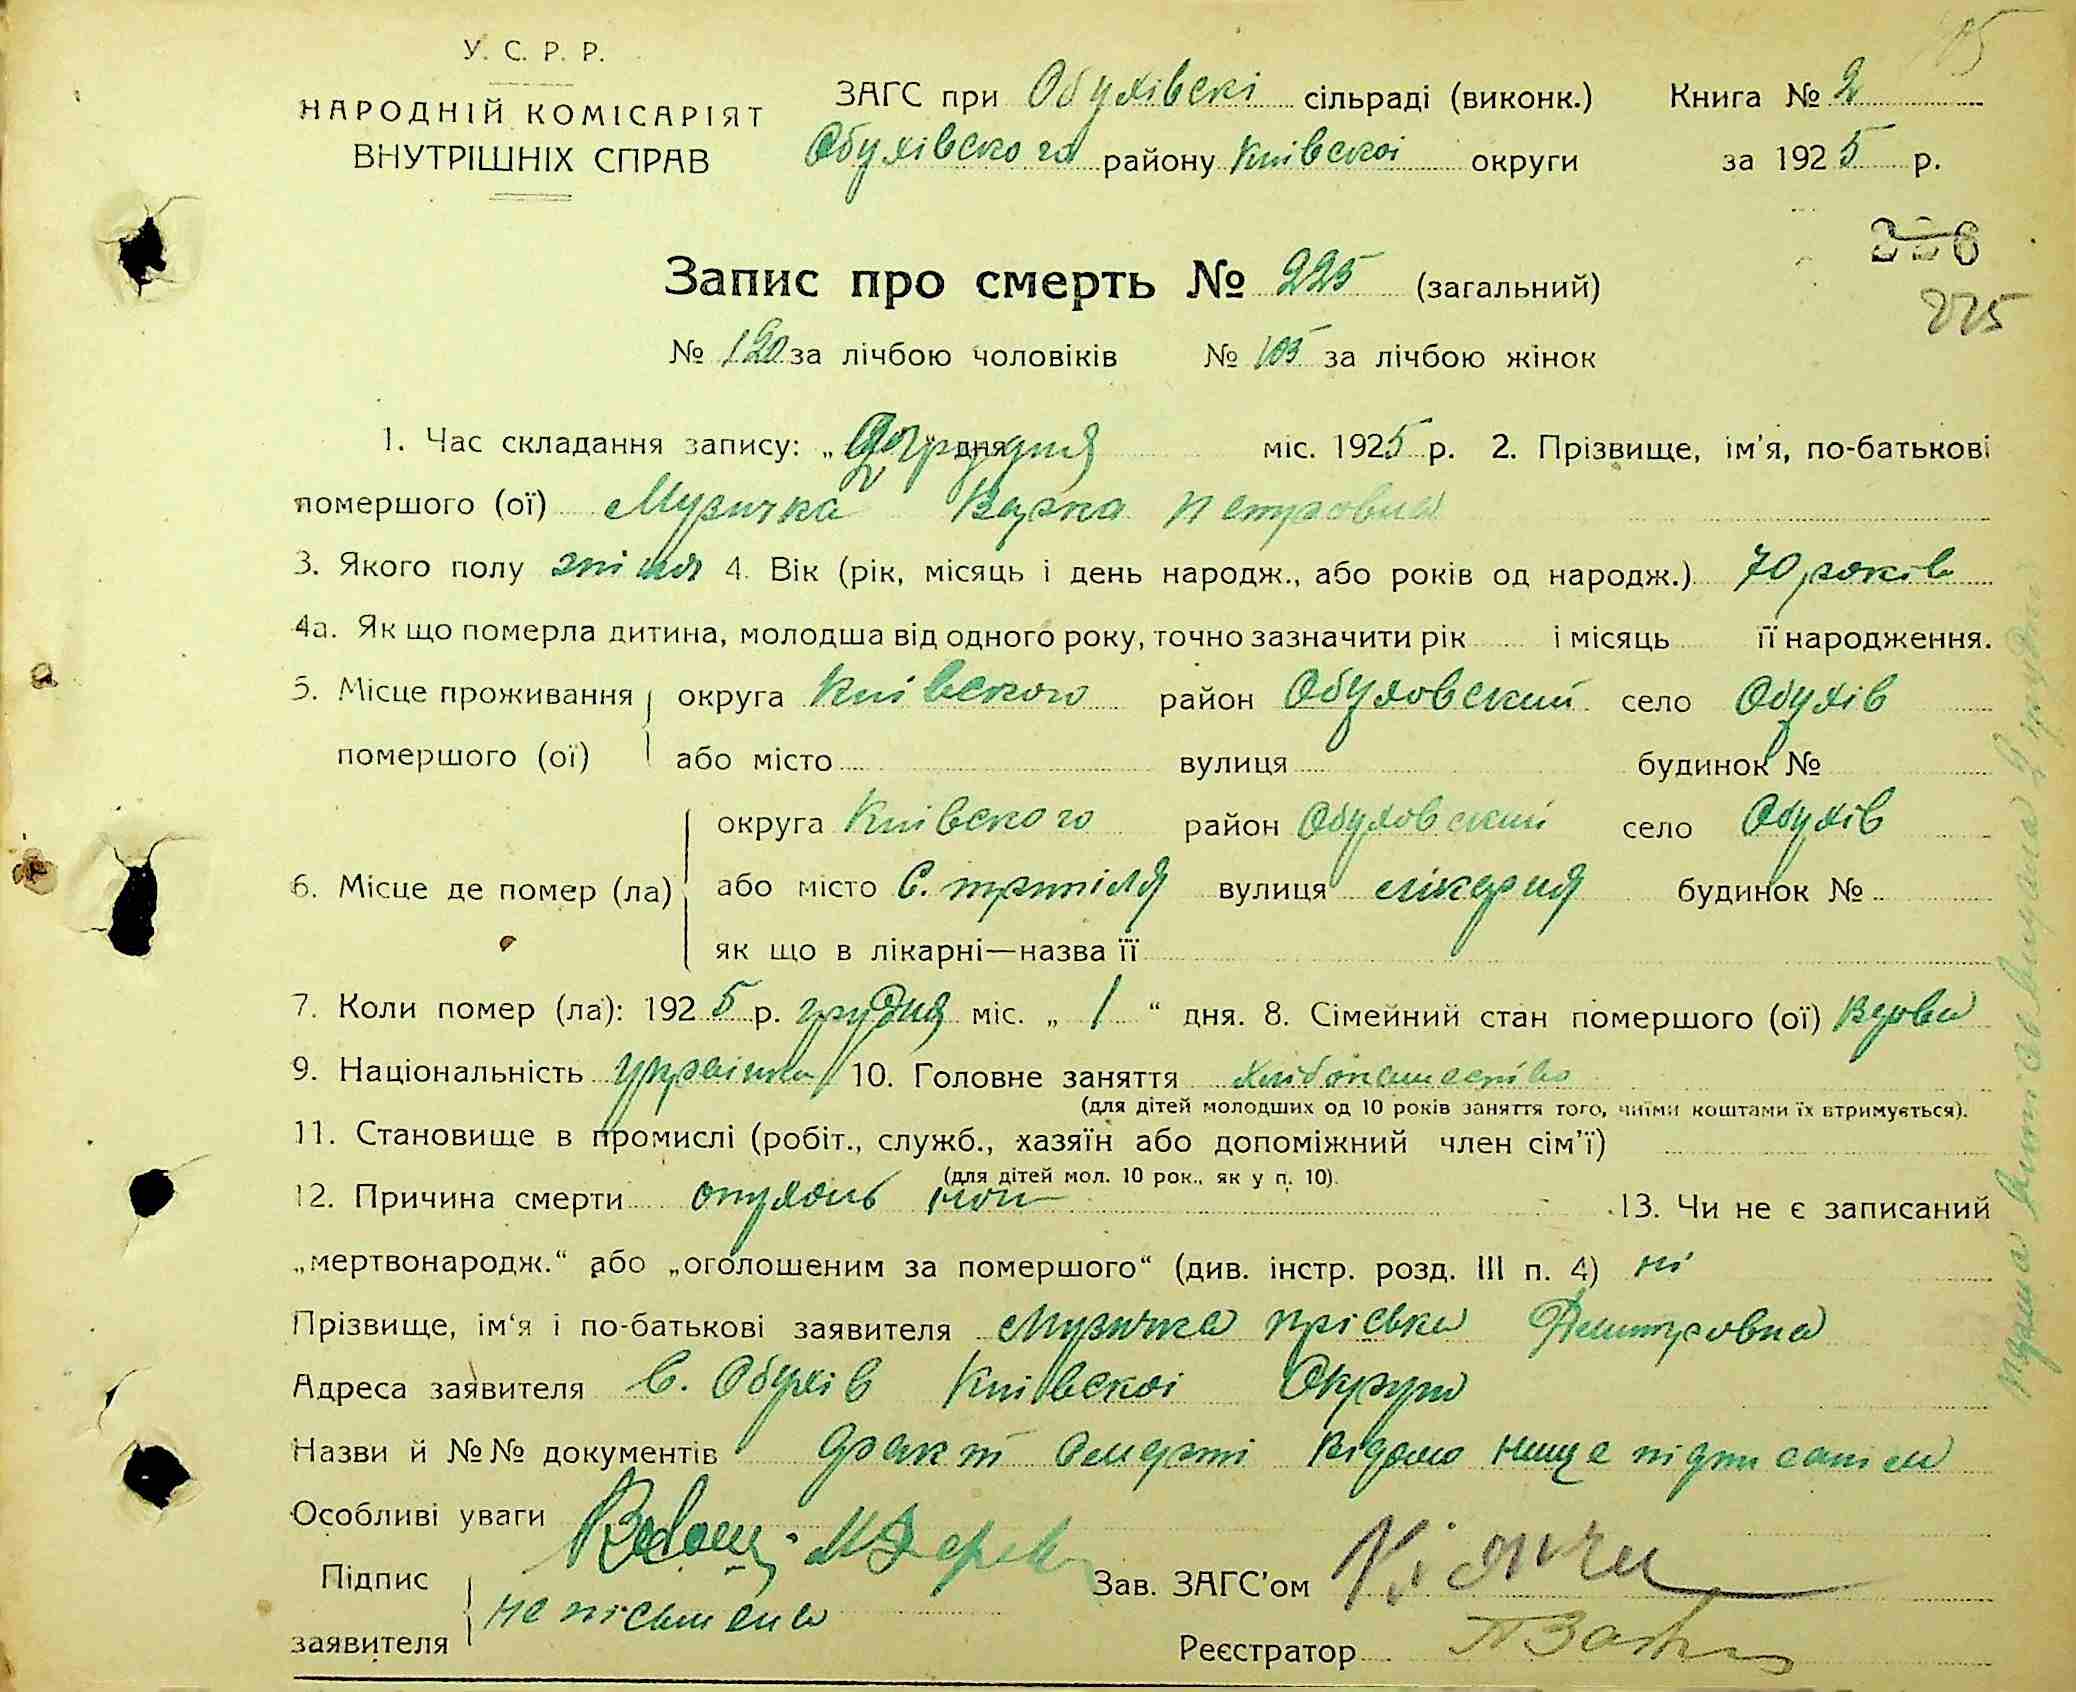 У. С. Р. Р.
НАРОДНІЙ КОМІСАРІЯТ
ВНУТРІШНІХ СПРАВ
ЗАГС при Обухівскі сільраді (виконк.) Книга № 2
Обухівского району Київскоі округи за 1925 р.
226
225
Запис про смерть № 225 (загальний)
№ 120 за лічбою чоловіків № 105 за лічбою жінок
1. Час складання запису: „ дня грудня міс. 1925 р. 2. Прізвище, ім'я, по-батькові
помершого (ої) Музичка Варка Петровна
3. Якого полу жіноя 4. Вік (рік, місяць і день народж., або років од народж.) 70 років
4а. Як що померла дитина, молодша від одного року, точно зазначити рік і місяць її народження.
5. Місце проживання округа Київского район Обуховский село Обухів
помершого (ої) або місто вулиця будинок №
округа Київского район Обуховский село Обухів
6. Місце де помер (ла) або місто С. трипілля вулиця лікарня будинок №
як що в лікарні—назва її
7. Коли помер (ла): 1925 р. грудня міс. „ 1 “ дня. 8. Сімейний стан помершого (ої) Вдова
9. Національність украінка 10. Головне заняття хліборашество
(для дітей молодших од 10 років заняття того, чиїми коштами їх втримується).
11. Становище в промислі (робіт., служб., хазяїн або допоміжний член сім'ї)
(для дітей мол. 10 рок., як у п. 10).
12. Причина смерти опухоль 13. Чи не є записаний
„мертвонародж.“ або „оголошеним за помершого“ (див. інстр. розд. III п. 4) ні
Прізвище, ім'я і по-батькові заявителя Музичка пріська Дмитровна
Адреса заявителя С. Обухів Київскоі Округи
Назви й №№ документів факт смерти відомо нище підписаним
Особливі уваги
Підпис
заявителя неписьмена
Зав. ЗАГС'ом
Реєстратор